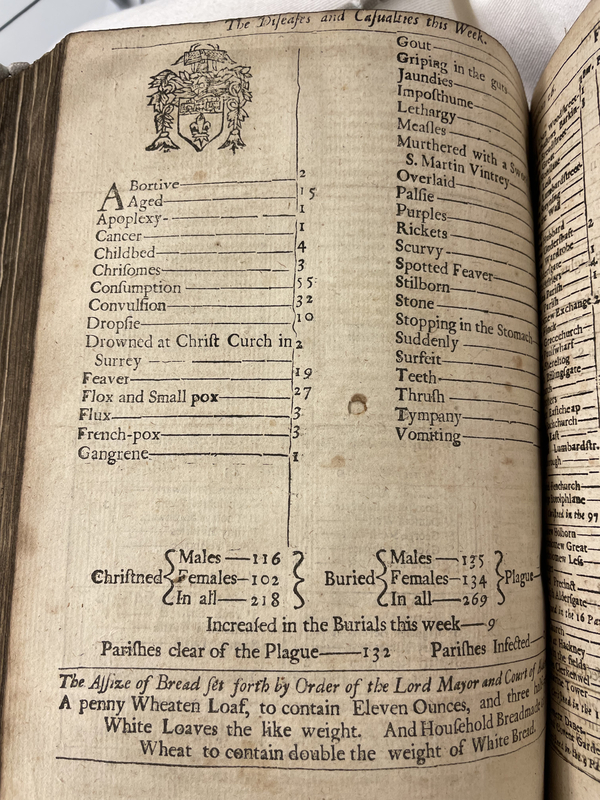 The Diſeaſes and Caſualties this Week.
ABortive 2
Aged 15
Apoplexy 1
Cancer 1
Childbed 4
Chriſomes 3
Conſumption 55
Convulſion 32
Dropſie 10
Drowned at Chriſt Curch in 2
Surrey
Feaver 19
Flox and Small pox 27
Flux 3
French-pox 3
Gangrene 1
Gout
Griping in the guts
Jaundies
Impoſthume
Lethargy
Meaſles
Murthered with a
S. Martin Vintrey
Overlaid
Palſie
Purples
Rickets
Scurvy
Spotted Feaver
Stilborn
Stone
Stopping in the Stomach
Suddenly
Surfeit
Teeth
Thruſh
Tympany
Vomiting
Chriſtned { Males — 116 Females — 102 In all — 218 }
Buried { Males — 135 Females — 134 In all — 269 } Plague
Increaſed in the Burials this week — 9
Pariſhes clear of the Plague — 132 Pariſhes Infected
The Aſſize of Bread ſet forth by Order of the Lord Mayor and Court of
A penny Wheaten Loaf, to contain Eleven Ounces, and three
White Loaves the like weight. And Houſehold Bread made
Wheat to contain double the weight of White Bread.